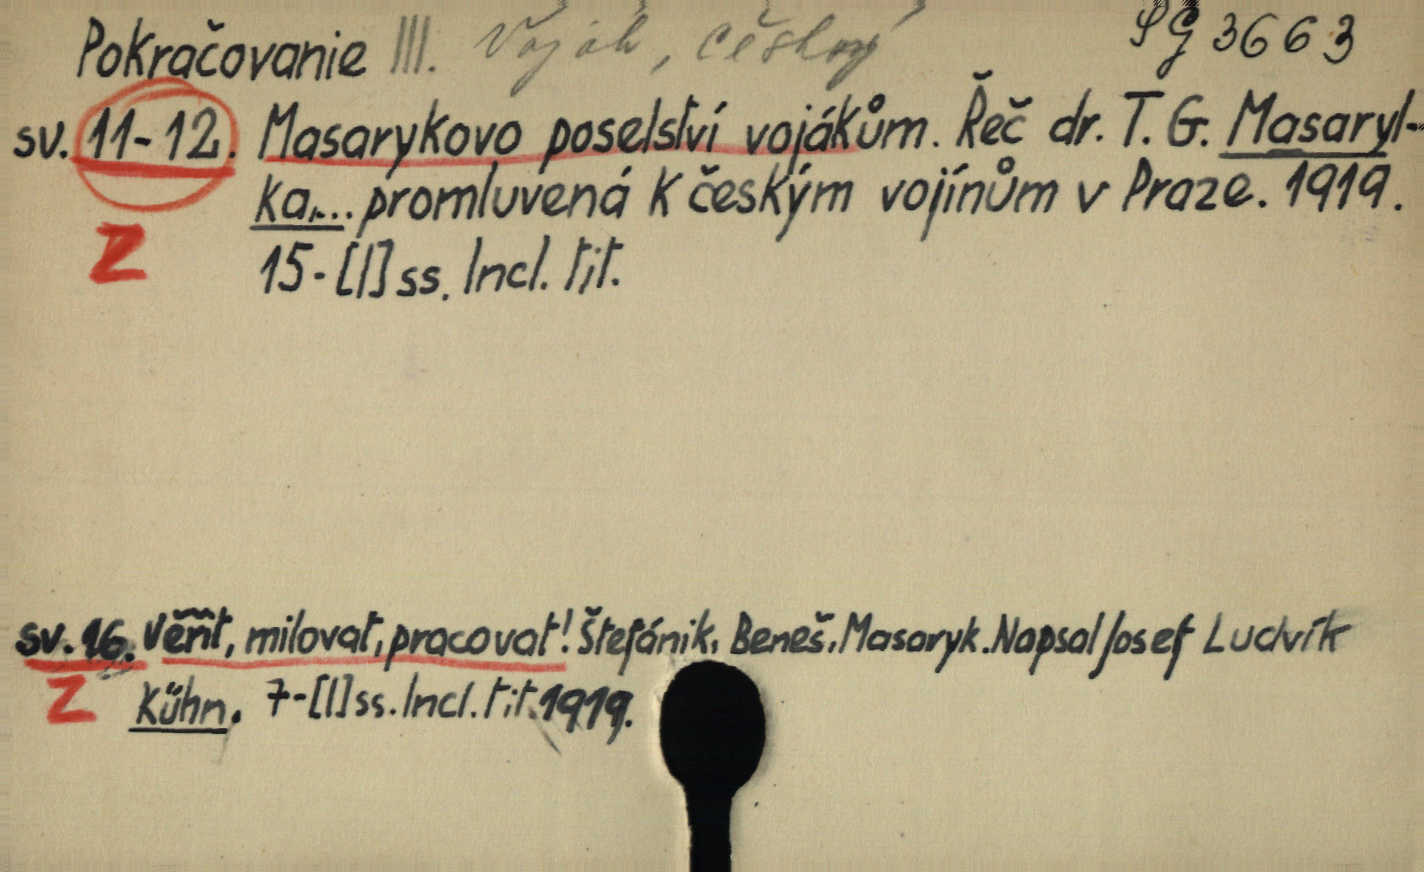 Pokračovanie III. Voják, český SG 3663
sv. 11-12. Masarykovo poselství vojákům. Řeč dr. T. G. Masary-
ka,... promluvená k českým vojínům v Praze. 1919.
15-[1] ss. Incl. tit.
sv. 16. Věřit, milovat, pracovat! Štefánik, Beneš, Masaryk. Napsal Josef Ludvík
Kühn. 7-[1] ss. Incl. tit. 1919.
Z
Z